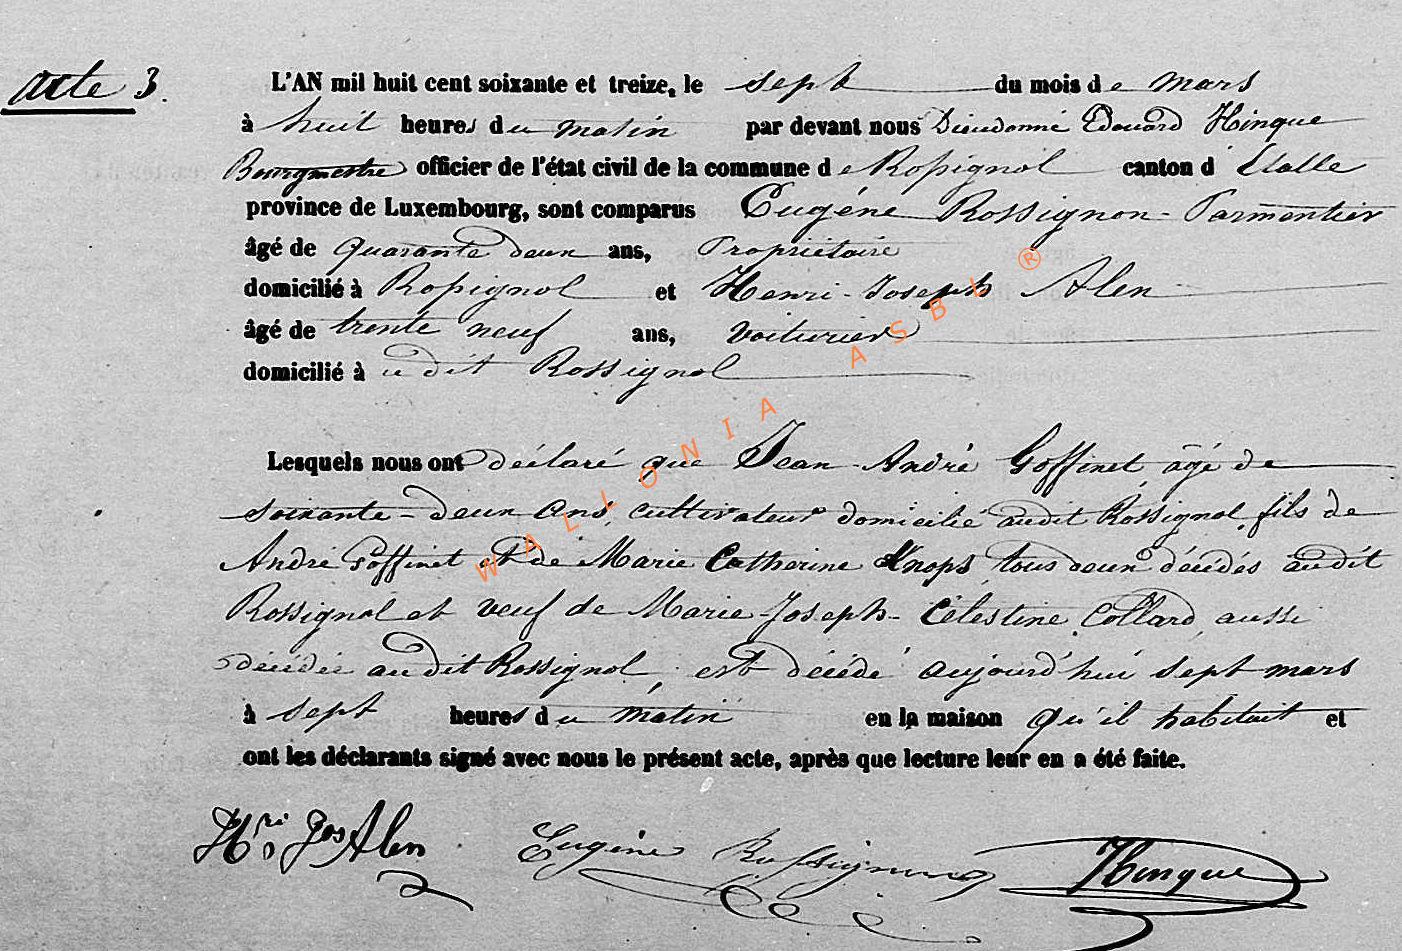 acte 3.
L'AN mil huit cent soixante et treize, le sept du mois de mars
à huit heures du matin par devant nous Dieudonné Edouard Hinque
Bourgmestre officier de l'état civil de la commune de Rossignol canton d'Etalle
province de Luxembourg, sont comparus Eugéne Rossignon-Parmentier
âgé de quarante deux ans, Propriétaire
domicilié à Rossignol et Henri-Joseph Alen
âgé de trente neuf ans, voiturier
domicilié à u dit Rossignol
Lesquels nous ont déclaré que Jean-André Goffinet âgé de
soixante-deux ans, cultivateur domicilié audit Rossignol, fils de
André Goffinet et de Marie Catherine Knops tous deux décédés audit
Rossignol et veuf de Marie-Joseph-Célestine Collard, aussi
décédée audit Rossignol, est décédé aujourd'hui sept mars
à sept heures du matin en la maison qu'il habitait et
ont les déclarants signé avec nous le présent acte, après que lecture leur en a été faite.
Hri Jos Alen Eugéne Rossignon Hinque
WALLONIA ASBL ®